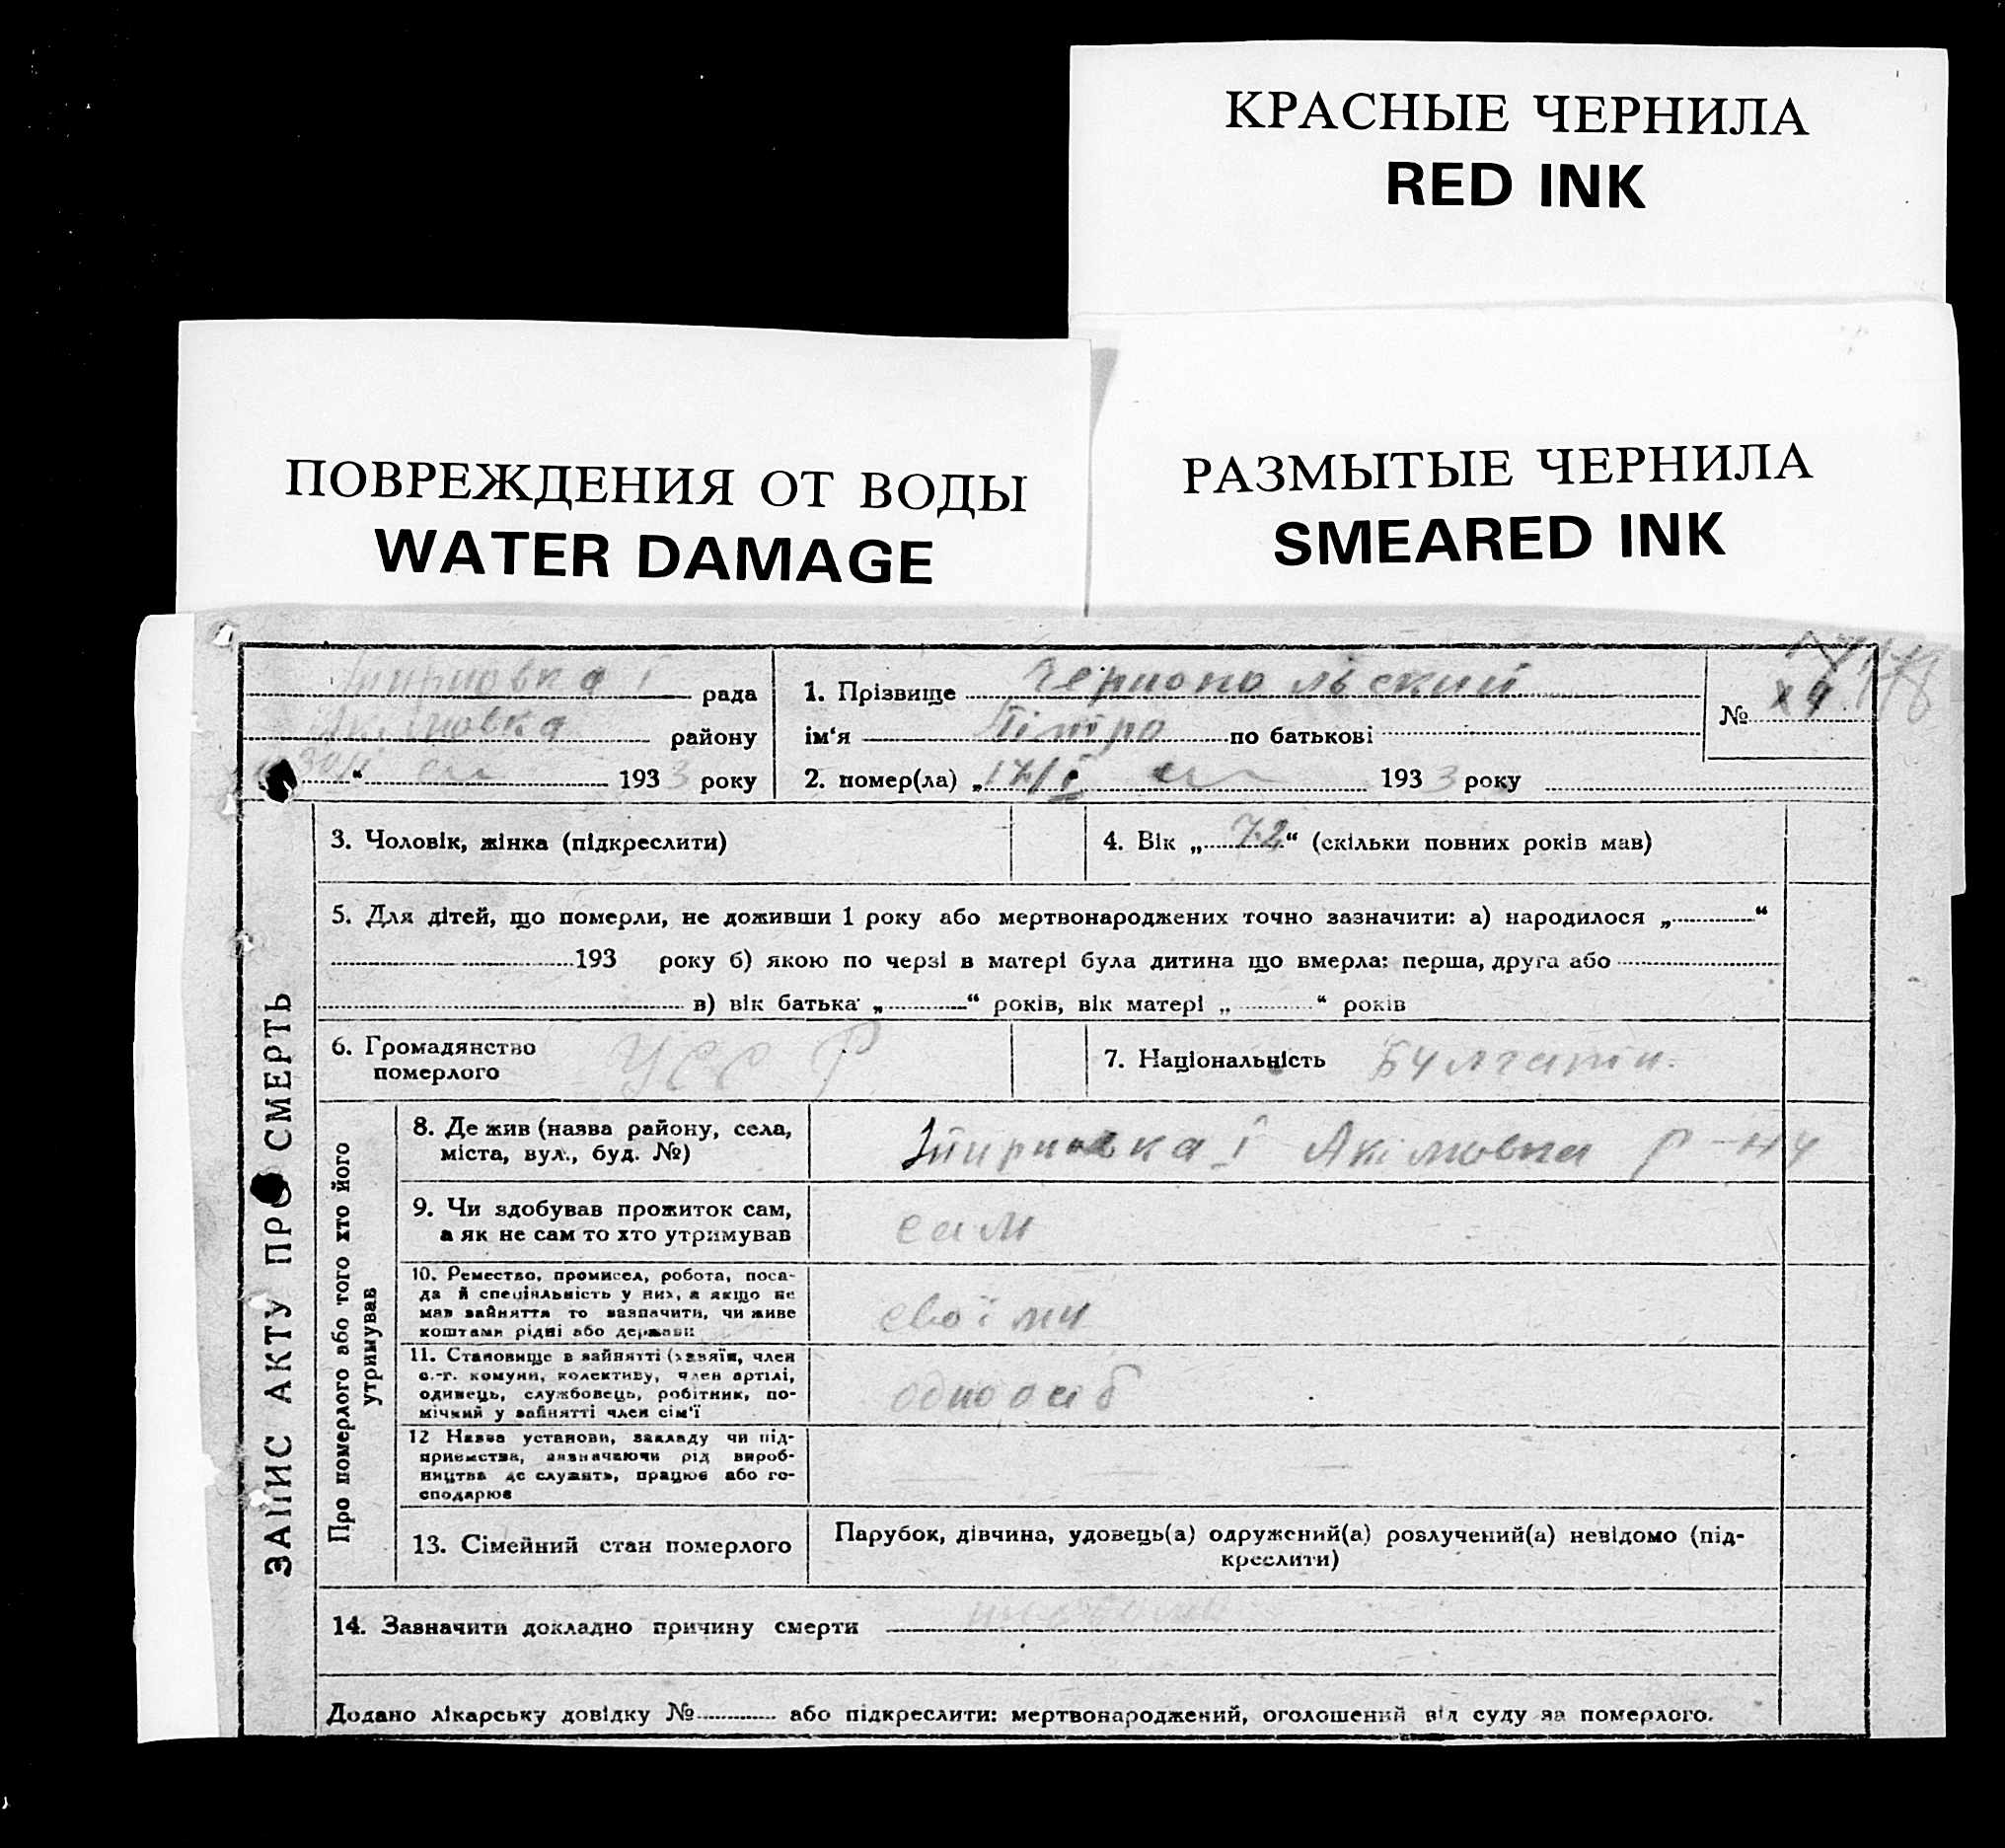 КРАСНЫЕ ЧЕРНИЛА
RED INK
ПОВРЕЖДЕНИЯ ОТ ВОДЫ
WATER DAMAGE
РАЗМЫТЫЕ ЧЕРНИЛА
SMEARED INK
рада
району
“ 1933 року
1. Прізвище
ім‘я Пітро по батькові
2. помер(ла) „17/I 1933 року
№
ЗАПИС АКТУ ПРО СМЕРТЬ
3. Чоловік, жінка (підкреслити)
4. Вік „72“ (скільки повних років мав)
5. Для дітей, що померли, не доживши 1 року або мертвонароджених точно зазначити: а) народилося „ “
193 року б) якою по черзі в матері була дитина що вмерла: перша, друга або
в) вік батька „ “ років, вік матері „ “ років
6. Громадянство
померлого
УССР
7. Національність Булгарин.
Про померлого або того хто його
утримував
8. Де жив (назва району, села,
міста, вул., буд. №)
Акімовка р-ну
9. Чи здобував прожиток сам,
а як не сам то хто утримував
сам
10. Ремество, промисел, робота, поса-
да й спеціяльність у них, а якщо не
мав зайняття то зазначити, чи живе
коштами рідні або держави
своїми
11. Становище в зайнятті (хазяїн, член
с.-г. комуни, колективу, член артілі,
одинець, службовець, робітник, по-
мічний у зайнятті член сім'ї
одноосіб
12 Назва установи, закладу чи під-
приємства, зазначаючи рід вироб-
ництва де служить, працює або го-
сподарює
13. Сімейний стан померлого
Парубок, дівчина, удовець(а) одружений(а) розлучений(а) невідомо (під-
креслити)
14. Зазначити докладно причину смерти
Додано лікарську довідку № або підкреслити: мертвонароджений, оголошений від суду за померлого.